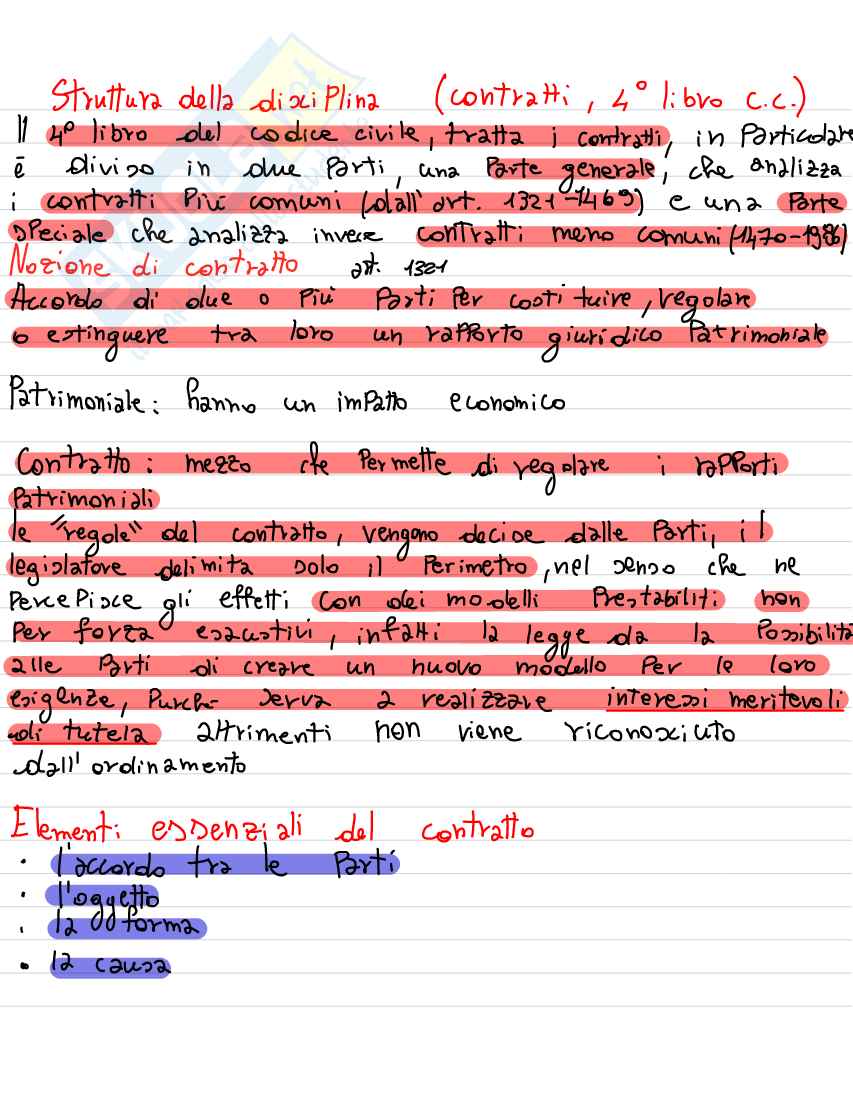 Struttura della disciplina (contratti, 4° libro c.c.)
Il 4° libro del codice civile, tratta i contratti, in particolare
è diviso in due parti, una parte generale, che analizza
i contratti più comuni (dall'art. 1321-1469) e una parte
speciale che analizza invece contratti meno comuni (1470-1986)
Nozione di contratto art. 1321
Accordo di due o più parti per costituire, regolare
o estinguere tra loro un rapporto giuridico patrimoniale
Patrimoniale: hanno un impatto economico
Contratto: mezzo che permette di regolare i rapporti
patrimoniali
le "regole" del contratto, vengono decise dalle parti, il
legislatore delimita solo il perimetro, nel senso che ne
percepisce gli effetti con dei modelli prestabiliti non
per forza esaustivi, infatti la legge da la possibilità
alle parti di creare un nuovo modello per le loro
esigenze, purché serva a realizzare interessi meritevoli
di tutela altrimenti non viene riconosciuto
dall'ordinamento
Elementi essenziali del contratto
• l'accordo tra le parti
• l'oggetto
• la forma
• la causa